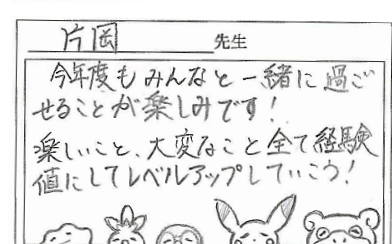 片岡先生
今年度もみんなと一緒に過ご
せることが楽しみです!
楽しいこと、大変なこと全て経験
値にしてレベルアップしていこう!